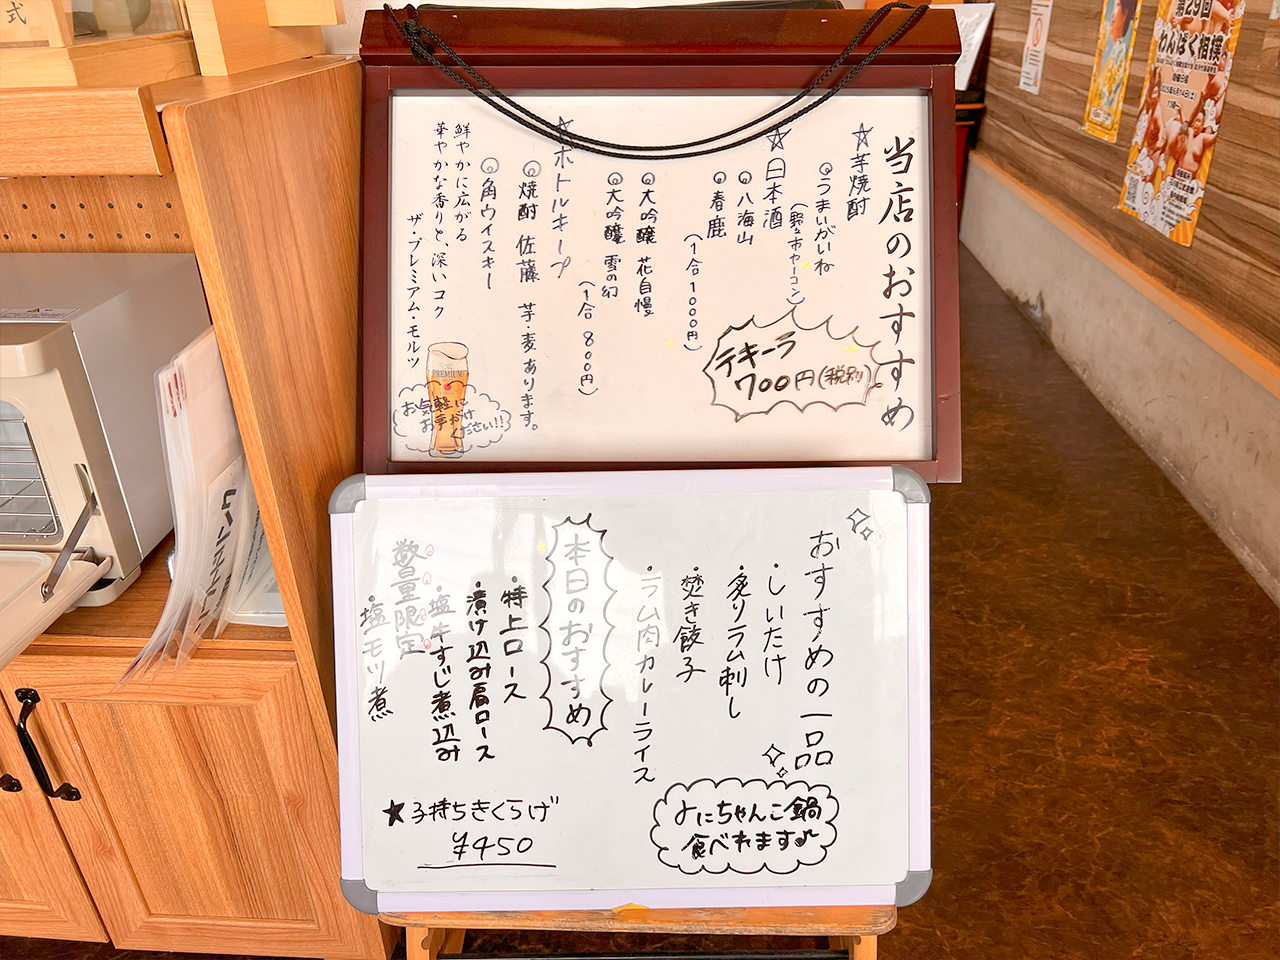 当店のおすすめ
☆芋焼酎
◎うまいがいね
(野々市ヤーコン)
☆日本酒
◎八海山
◎春鹿
(1合1000円)
◎大吟醸 花自慢
◎大吟醸 雪の幻
(1合 800円)
☆ボトルキープ
◎焼酎 佐藤 芋・麦あります。
◎角ウイスキー
テキーラ
700円(税別)
鮮やかに広がる
華やかな香りと、深いコク
ザ・プレミアム・モルツ
PREMIUM
お気軽に
お声がけ
ください!!
おすすめの一品
・しいたけ
・炙りラム刺し
・焚き餃子
・ラム肉カレーライス
本日のおすすめ
・特上ロース
・漬け込み肩ロース
・塩牛すじ煮込み
数量限定
・塩モツ煮
★子持ちきくらげ
¥450
にちゃんこ鍋
食べれます♪
式
第29回
わんぱく相撲